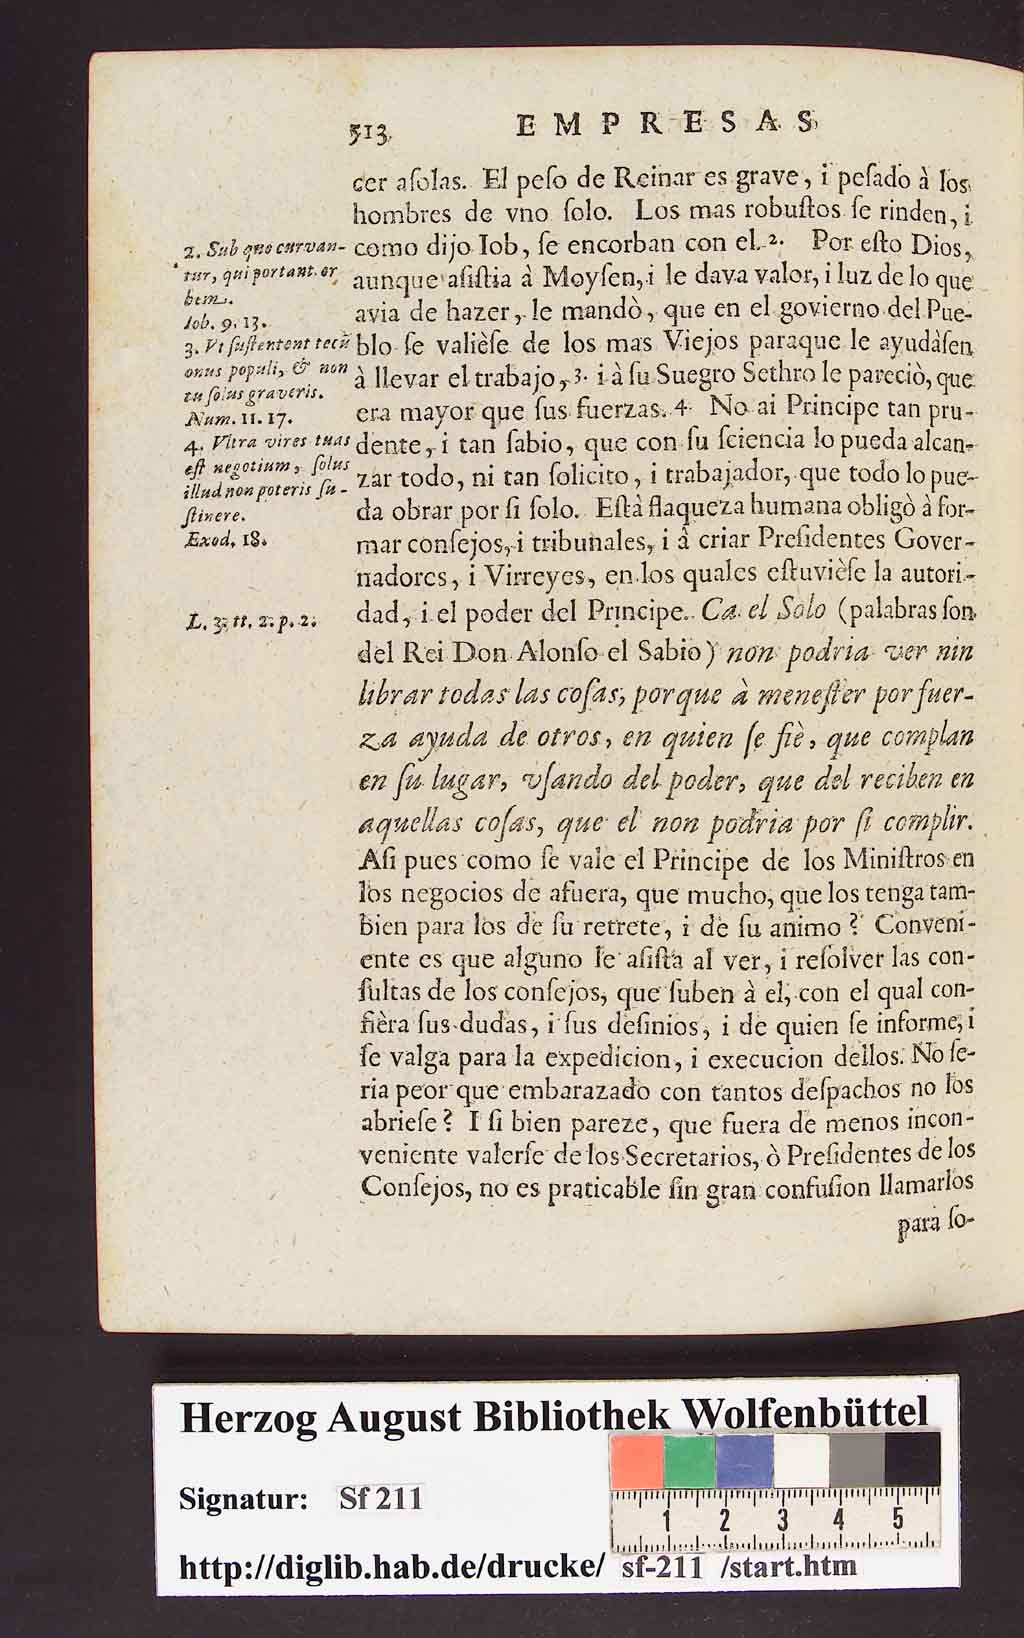 513. EMPRESAS
cer aſolas. El peſo de Reinar es grave, i peſado à los
hombres de vno ſolo. Los mas robuſtos ſe rinden, i
como dijo Iob, ſe encorban con el. 2. Por eſto Dios,
aunque aſiſtia à Moyſen, i le dava valor, i luz de lo que
avia de hazer, le mandò, que en el govierno del Pue-
blo ſe valièſe de los mas Viejos paraque le ayudàſen
à llevar el trabajo, 3. i à ſu Suegro Sethro le pareciò, que
era mayor que ſus fuerzas. 4. No ai Principe tan pru-
dente, i tan ſabio, que con ſu ſciencia lo pueda alcan-
zar todo, ni tan ſolicito, i trabajador, que todo lo pue-
da obrar por ſi ſolo. Eſtà flaqueza humana obligò à for-
mar conſejos, i tribunales, i à criar Preſidentes Gover-
nadores, i Virreyes, en los quales eſtuvièſe la autori-
dad, i el poder del Principe. Ca el Solo (palabras ſon
del Rei Don Alonſo el Sabio) non podria ver nin
librar todas las coſas, porque à meneſter por fuer-
za ayuda de otros, en quien ſe fiè, que complan
en ſu lugar, vſando del poder, que del reciben en
aquellas coſas, que el non podria por ſi complir.
Aſi pues como ſe vale el Principe de los Miniſtros en
los negocios de afuera, que mucho, que los tenga tam-
bien para los de ſu retrete, i de ſu animo? Conveni-
ente es que alguno le aſiſta al ver, i reſolver las con-
ſultas de los conſejos, que ſuben à el, con el qual con-
fièra ſus dudas, i ſus deſinios, i de quien ſe informe, i
ſe valga para la expedicion, i execucion dellos. No ſe-
ria peor que embarazado con tantos deſpachos no los
abrieſe? I ſi bien pareze, que fuera de menos incon-
veniente valerſe de los Secretarios, ò Preſidentes de los
Conſejos, no es praticable ſin gran confuſion llamarlos
para ſo-
2. Sub quo curvan-
tur, qui portant or
bem.
Iob. 9. 13.
3. Vt ſuſtentent tecũ
onus populi, & non
tu ſolus graveris.
Num. 11. 17.
4. Vltra vires tuas
eſt negotium, ſolus
illud non poteris ſu-
ſtinere.
Exod. 18.
L. 3. tt. 2. p. 2.
Herzog August Bibliothek Wolfenbüttel
Signatur: Sf 211
1 2 3 4 5
http://diglib.hab.de/drucke/ sf-211 /start.htm